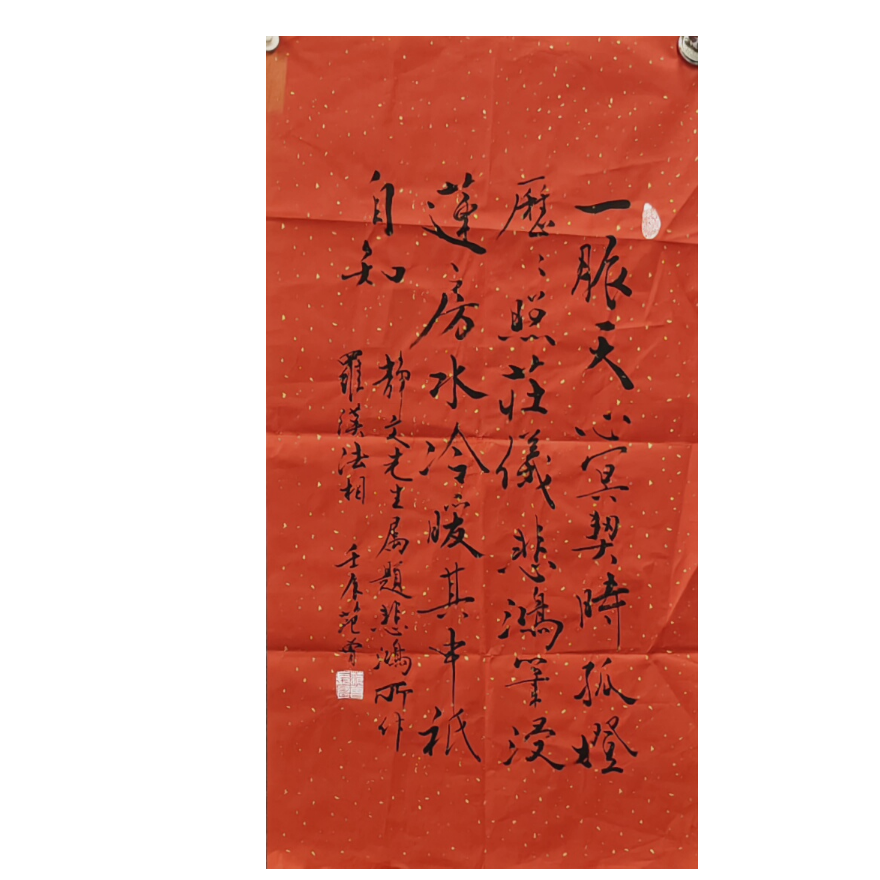 一脈天心冥契時孤燈
歷〻照莊儀悲鴻筆浸
蓮房水冷暖其中祇
自知
靜文先生属題悲鴻所作
羅漢法相
壬辰范曾